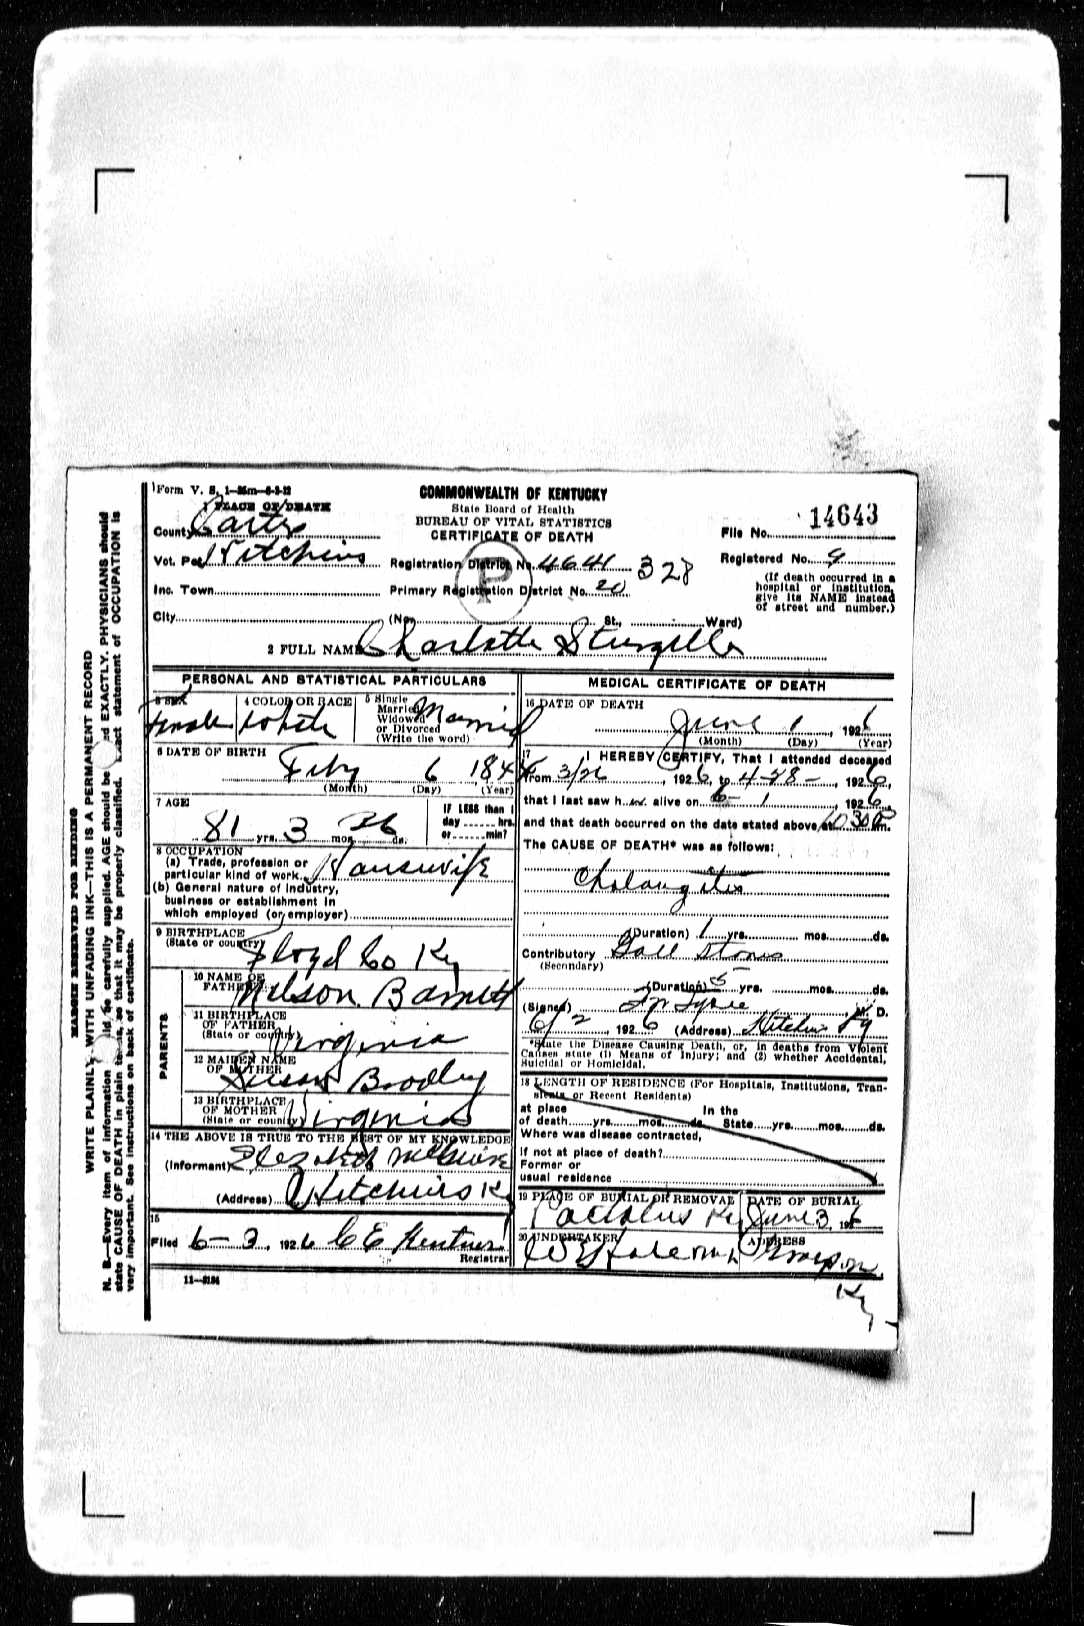 Form V. S. 1—35m—6-3-22
COMMONWEALTH OF KENTUCKY
State Board of Health
BUREAU OF VITAL STATISTICS
CERTIFICATE OF DEATH
1 PLACE OF DEATH
County Carter
Vot. Pct. Hitchins
Inc. Town
City
Registration District No. 4641 328
Primary Registration District No. 20
(No. St., Ward)
P
File No. 14643
Registered No. 9
(If death occurred in a
hospital or institution,
give its NAME instead
of street and number.)
2 FULL NAME Charlotte Sturgill
PERSONAL AND STATISTICAL PARTICULARS
3 SEX Female
4 COLOR OR RACE White
5 Single
Married
Widowed
or Divorced
(Write the word) Married
6 DATE OF BIRTH Feby 6 184
(Month) (Day) (Year)
7 AGE
81 yrs. 3 mos. 26 ds.
IF LESS than 1
day hrs.
or min?
8 OCCUPATION
(a) Trade, profession or
particular kind of work. Housewife
(b) General nature of industry,
business or establishment in
which employed (or employer)
9 BIRTHPLACE
(State or country) Floyd Co Ky
PARENTS
10 NAME OF
FATHER Wilson Barnett
11 BIRTHPLACE
OF FATHER
(State or country) Virginia
12 MAIDEN NAME
OF MOTHER Susan Bradley
13 BIRTHPLACE
OF MOTHER
(State or country) Virginia
14 THE ABOVE IS TRUE TO THE BEST OF MY KNOWLEDGE
(Informant) Elezabeth McGuire
(Address) Hitchins Ky
15
Filed 6-3, 1926 C E Kentner
Registrar
11—3184
MEDICAL CERTIFICATE OF DEATH
16 DATE OF DEATH
June 1, 1926
(Month) (Day) (Year)
17 I HEREBY CERTIFY, That I attended deceased
from 3/26, 1926, to 4-28-, 1926,
that I last saw h alive on 6-1, 1926,
and that death occurred on the date stated above, at 1030 P m.
The CAUSE OF DEATH* was as follows:
Cholangitis
(Duration) 1 yrs. mos. ds.
Contributory Gall Stones
(Secondary)
(Duration) 5 yrs. mos. ds.
(Signed) M. D.
6/2, 1926 (Address) Hitchins Ky
*State the Disease Causing Death, or, in deaths from Violent
Causes state (1) Means of Injury; and (2) whether Accidental,
Suicidal or Homicidal.
18 LENGTH OF RESIDENCE (For Hospitals, Institutions, Tran-
sients, or Recent Residents)
at place In the
of death yrs. mos. ds. State yrs. mos. ds.
Where was disease contracted,
if not at place of death?
Former or
usual residence
19 PLACE OF BURIAL OR REMOVAL
Pactolus Ky
DATE OF BURIAL
June 3, 1926
20 UNDERTAKER
ADDRESS
Grayson
Ky
MARGIN RESERVED FOR BINDING
WRITE PLAINLY, WITH UNFADING INK—THIS IS A PERMANENT RECORD
N. B.—Every item of information should be carefully supplied. AGE should be stated EXACTLY. PHYSICIANS should
state CAUSE OF DEATH in plain terms, so that it may be properly classified. Exact statement of OCCUPATION is
very important. See instructions on back of certificate.